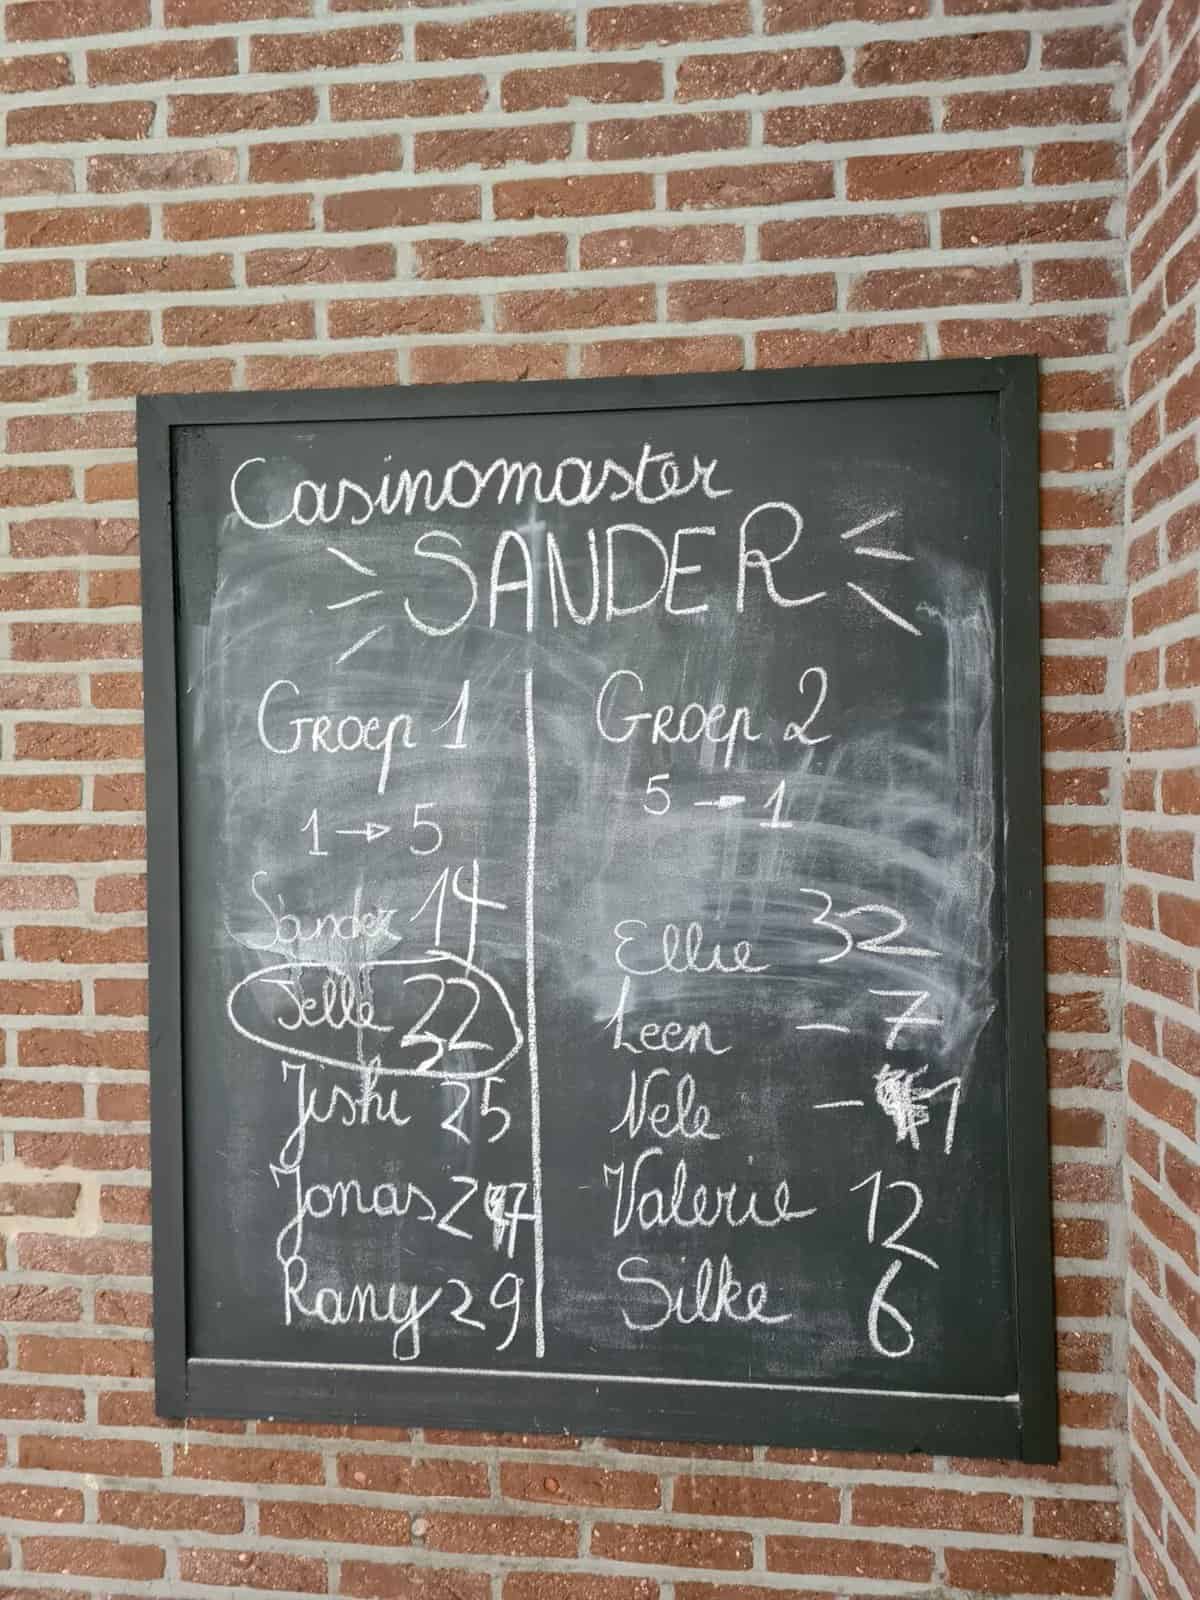 Casinomaster
SANDER
Groep 1
1 → 5
Sander 14
Jelle 22
Jishi 25
Jonas 27
Rany 29
Groep 2
5 → 1
Ellie 32
Leen - 7
Nele - 1
Valerie 12
Silke 6